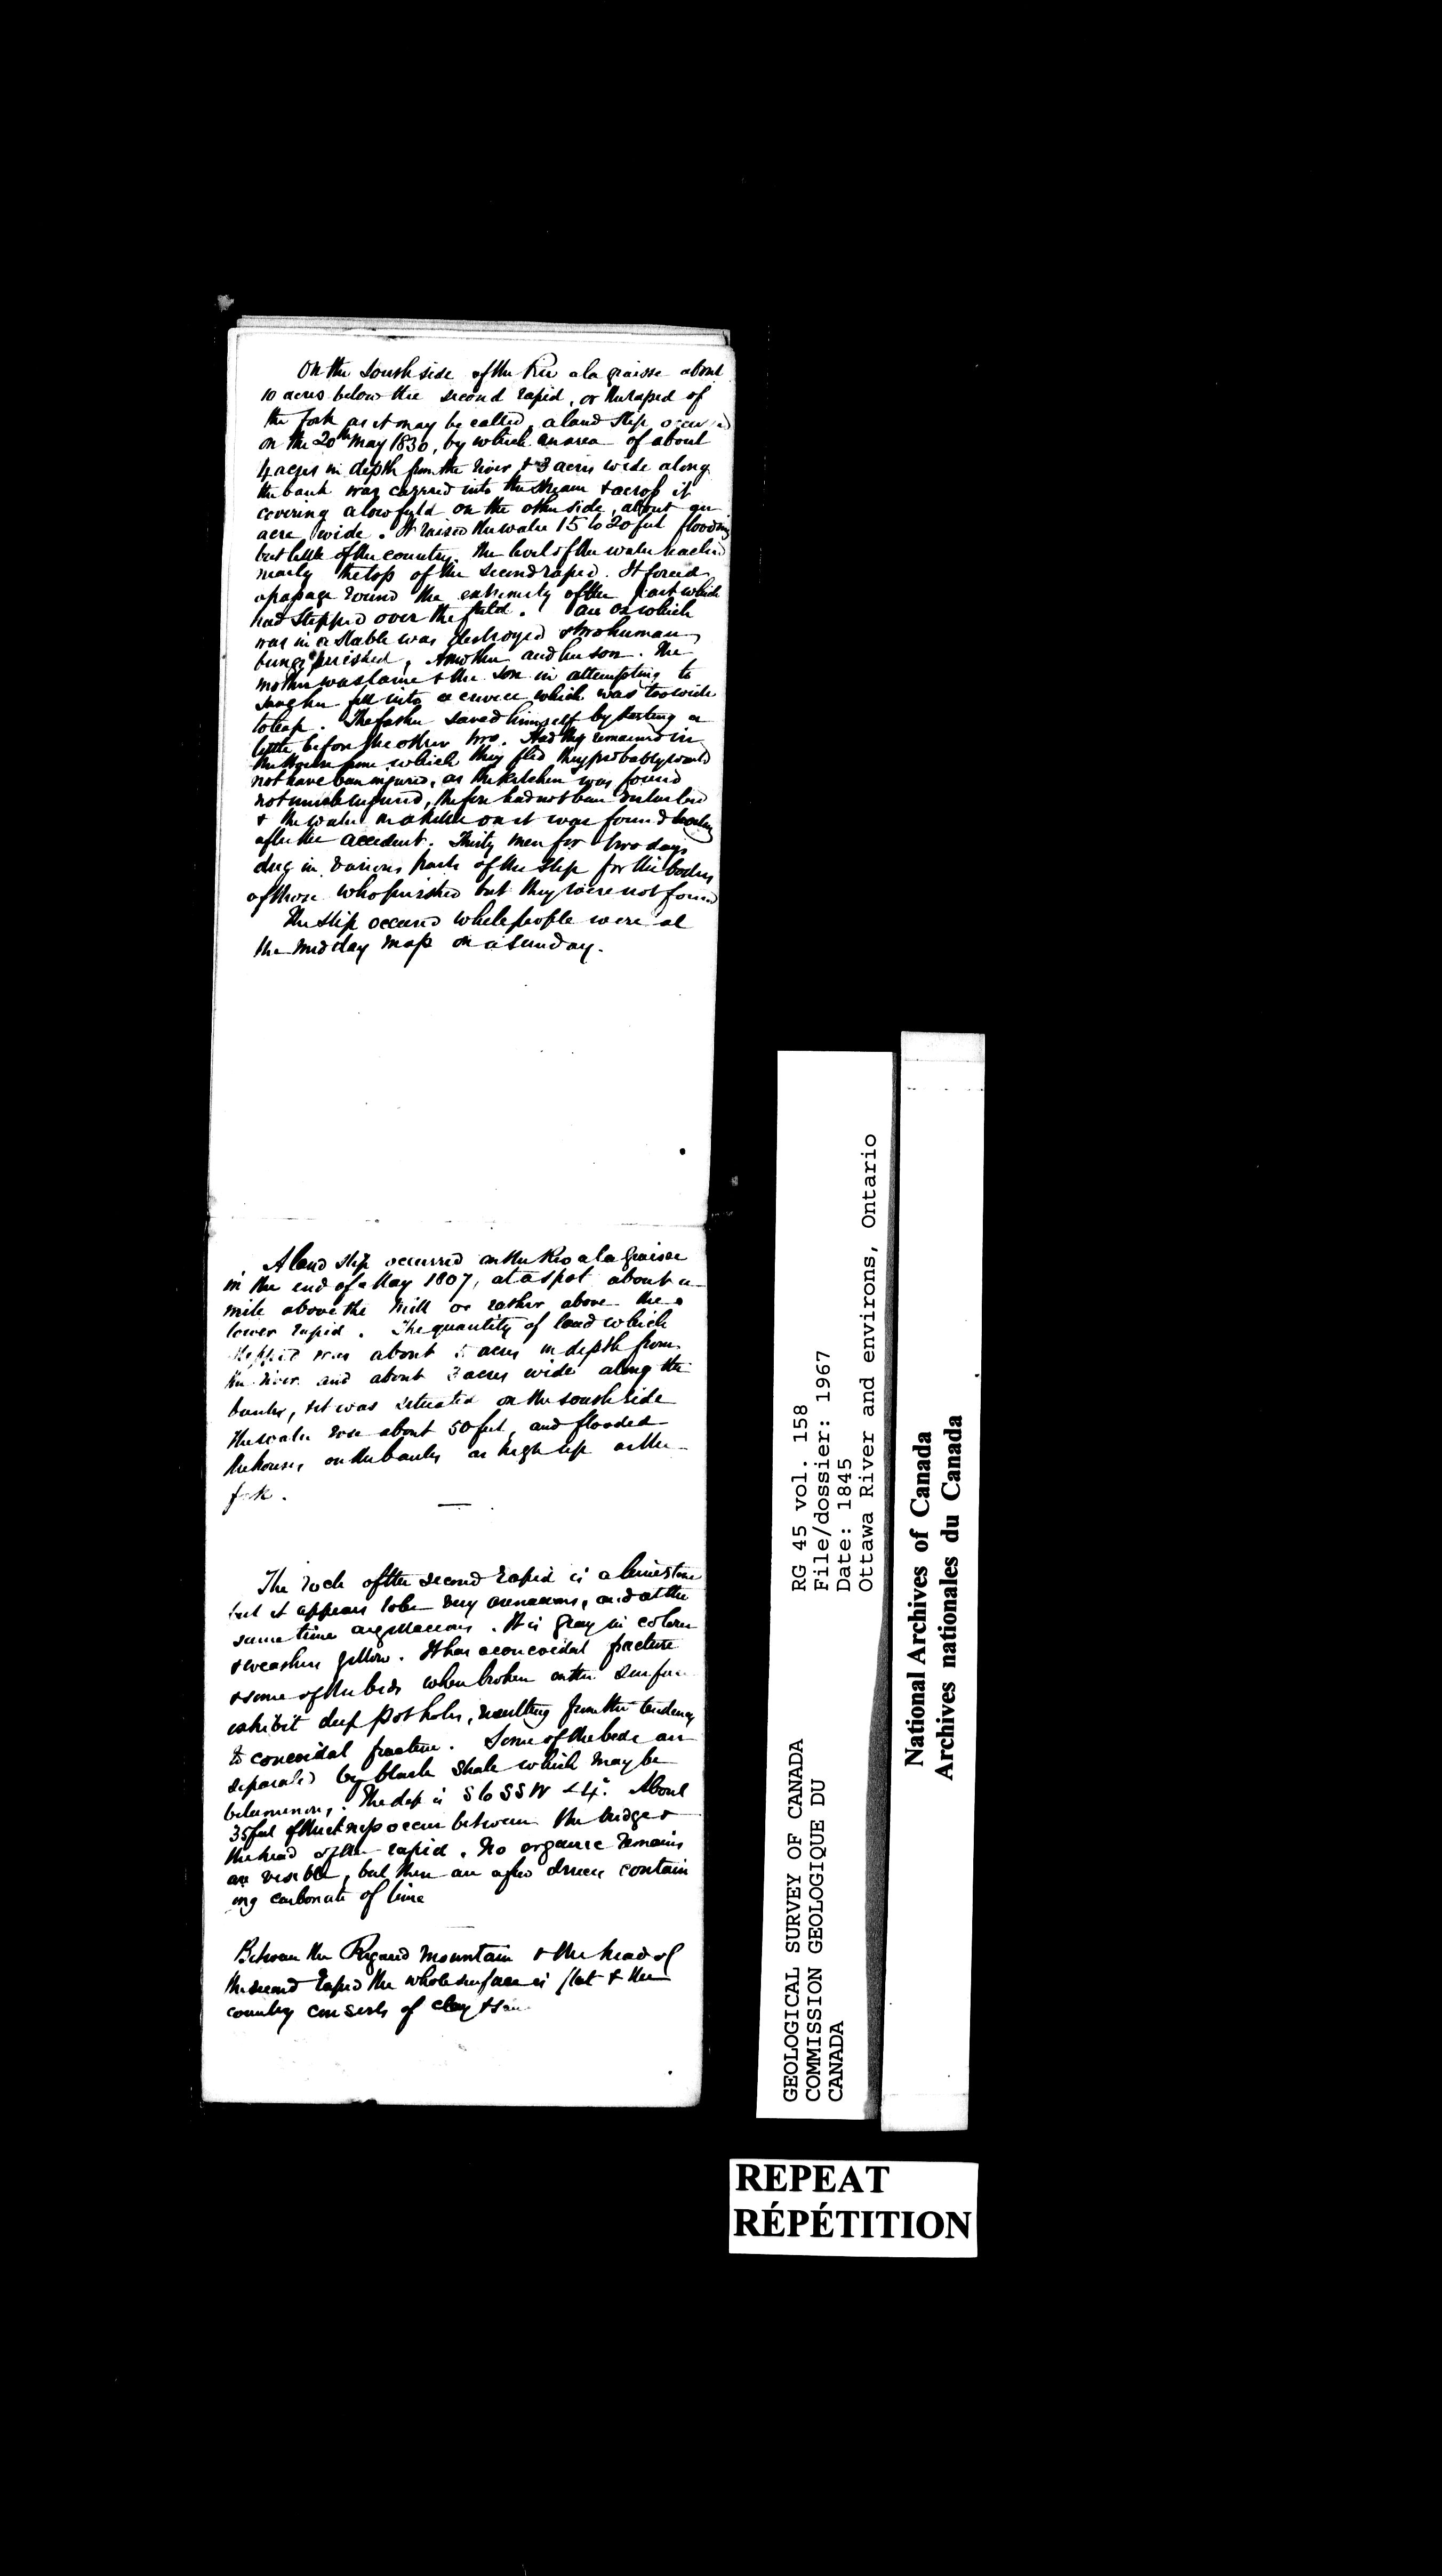 On the South side of the Riv a la graisse about
10 acres below the second rapid, or the rapid of
the fork as it may be called, a land slip occurred
on the 20th May 1830, by which an area of about
4 acres in depth from the river & 3 acres wide along
the bank was carried into the stream & across it
covering a low field on the other side, about an
acre wide. It raised the water 15 to 20 feet flooding
but little of the country. The level of the water reached
nearly the top of the second rapid. It forced
a passage round the extremity of the part which
had slipped over the field. An ox which
was in a stable was destroyed & two human
beings perished, A mother and her son. The
mother was lame & the son in attempting to
save her fell into a crevice which was too wide
to leap. The father saved himself by starting a
little before the other two. Had they remained in
the house from which they fled they probably would
not have been injured, as the kitchen was found
not much injured, the fire had not been disturbed
& the water in a kettle on it was found boiling
after the accident. Thirty men for two days
dug in various parts of the slip for the bodies
of those who perished but they were not found
The slip occured while people were at
the mid day mass on a sunday.
A land slip occurred on the Riv a la Graisse
in the end of May 1807, at a spot about a
mile above the Mill or rather above the
lower rapid. The quantity of land which
slipped was about 5 acres in depth from
the river and about 3 acres wide along the
banks, & it was situated on the south side
The water rose about 50 feet, and flooded
the houses on the banks as high up as the
fork.
The rock of the second rapid is a limestone
but it appears to be very arenaceous, and at the
same time argillaceous. It is gray in colour
& weathers yellow. It has a concoidal fracture
& some of the beds when broken on the surface
exhibit deep pot holes, resulting from the tendency
to concoidal fracture. Some of the beds are
separated by black shale which may be
bituminous. The dip is S to SSW < 4°. About
35 feet of thickness occur between the bridge &
the head of the rapid. No organic remains
are visible, but there are a few druses contain
ing carbonate of lime
Between the Rigaud Mountain & the head of
the second rapid the whole surface is flat & the
country consists of clay &
RG 45 vol. 158
File/dossier: 1967
Date: 1845
Ottawa River and environs, Ontario
GEOLOGICAL SURVEY OF CANADA
COMMISSION GEOLOGIQUE DU
CANADA
National Archives of Canada
Archives nationales du Canada
REPEAT
RÉPÉTITION